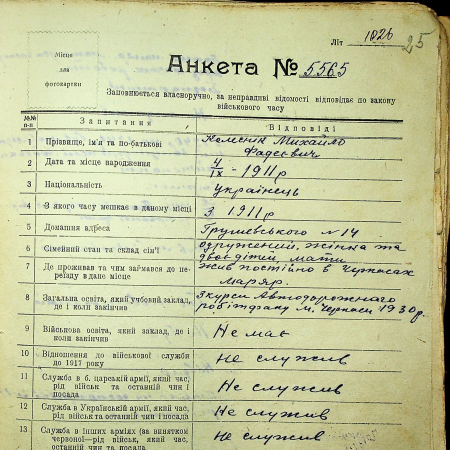 Літ 1026
25
Місце
для
фотокартки
Анкета № 5565
Заповнюється власноручно, за неправдиві відомості відповідає по закону
військового часу
№№ п-п Запитання Відповіді
1 Прізвище, ім'я та по-батькові Колесник Михайло
Фадєєвич
2 Дата та місце народження 4/IX - 1911 р
3 Національність українець
4 З якого часу мешкає в даному місці з 1911 р
5 Домашня адреса Грушевського № 14
6 Сімейний стан та склад сім'ї одружений, жінка та
двоє дітей, мати
7 Де проживав та чим займався до пе-
реїзду в дане місце жив постійно в Черкасах
маляр.
8 Загальна освіта, який учбовий заклад,
де і коли закінчив 3 курси Автодорожнього
робітфаку м. Черкаси 1930 р.
9 Військова освіта, який заклад, де і
коли закінчив Не має
10 Відношення до військової служби
до 1917 року не служив
11 Служба в б. царській армії, який час,
рід військ та останній чин і
посада не служив
12 Служба в Українській армії, який час,
рід військ та останній чин і посада не служив
13 Служба в інших арміях (за винятком
червоної—рід військ, який час,
останній чин та посада не служив